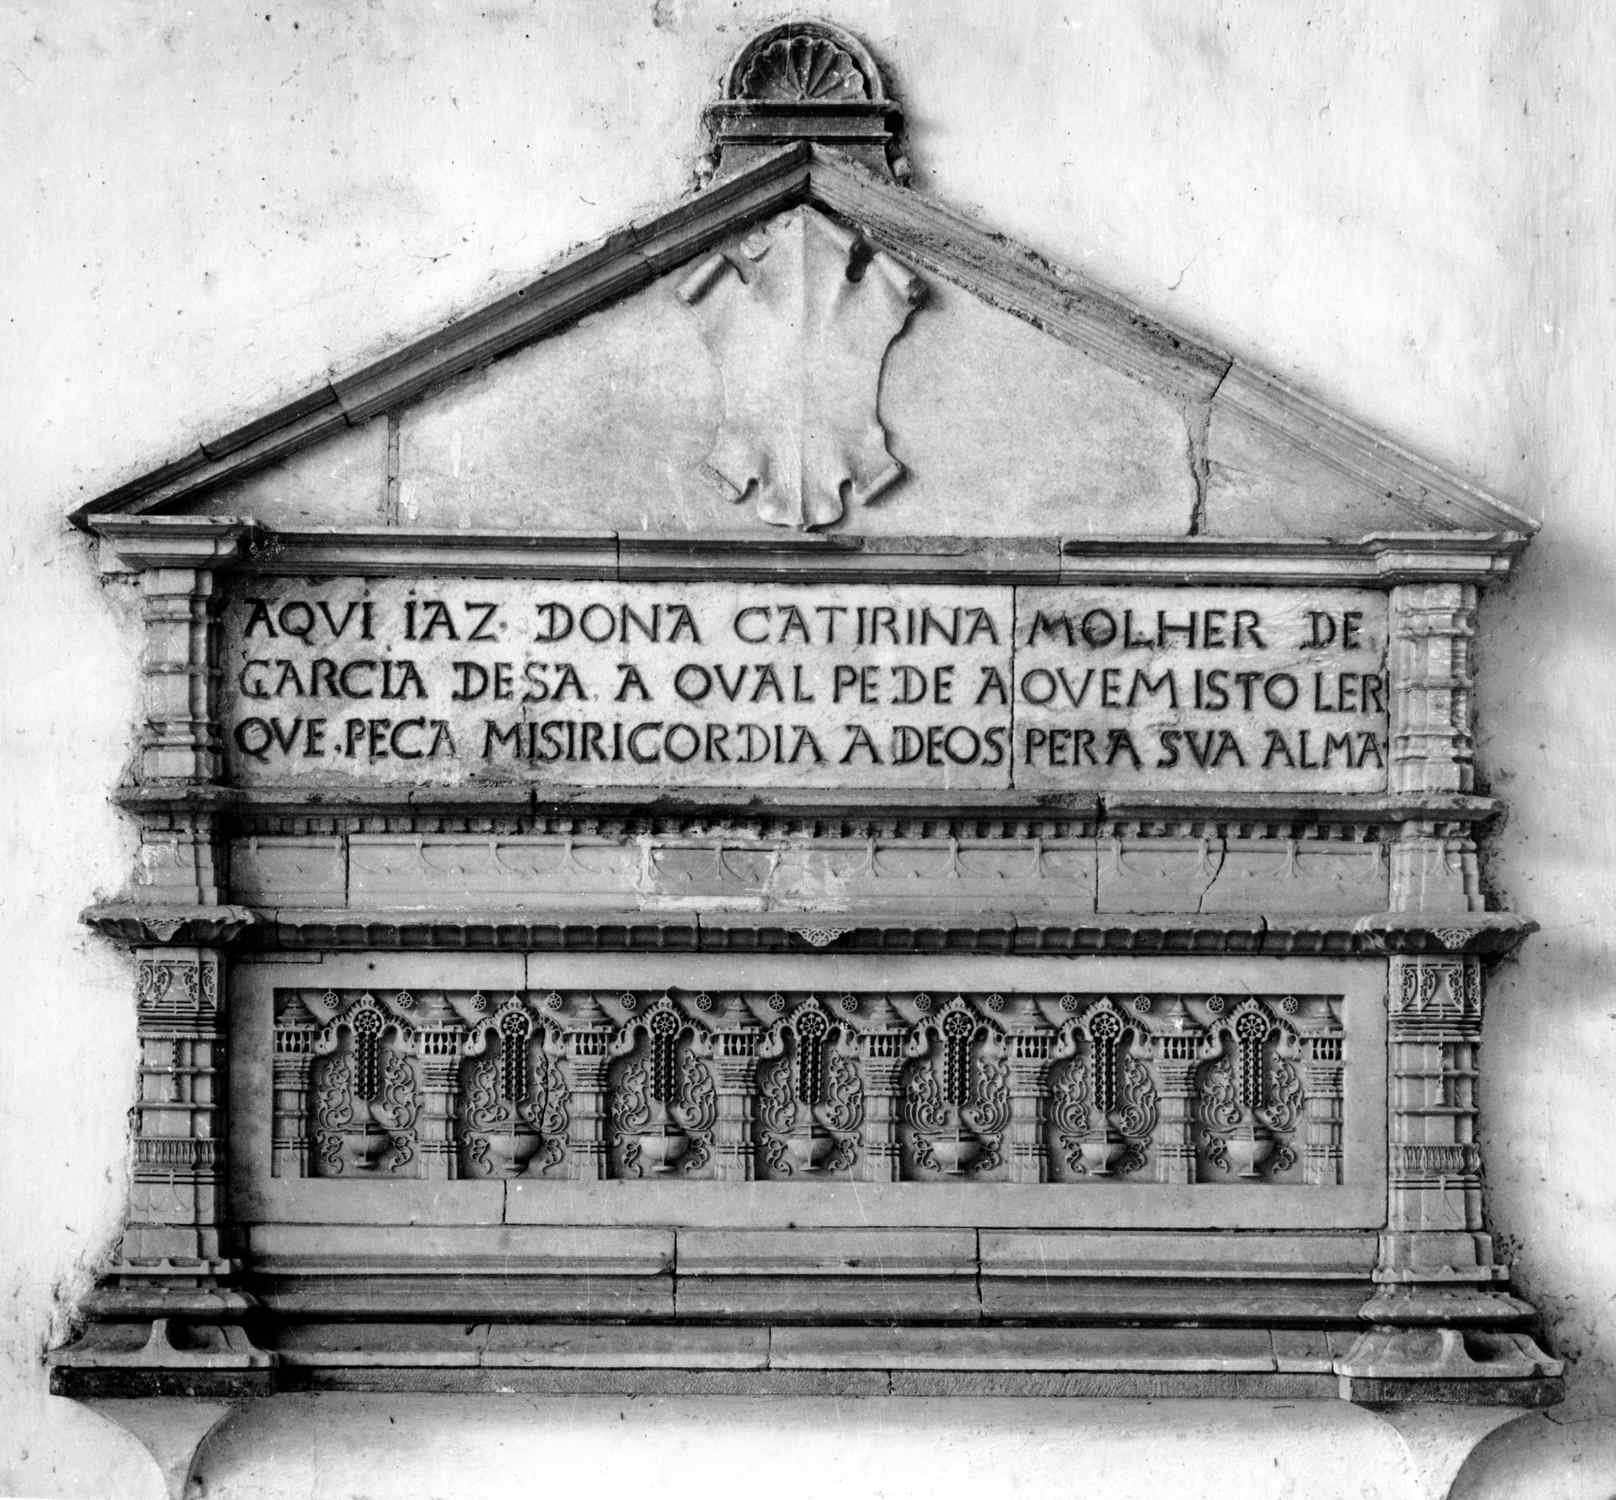 AQVI IAZ. DONA CATIRINA MOLHER DE
GARCIA DE SA. A QVAL PEDE A QVEM ISTO LER
QVE. PECA MISIRICORDIA A DEOS PERA SVA ALMA